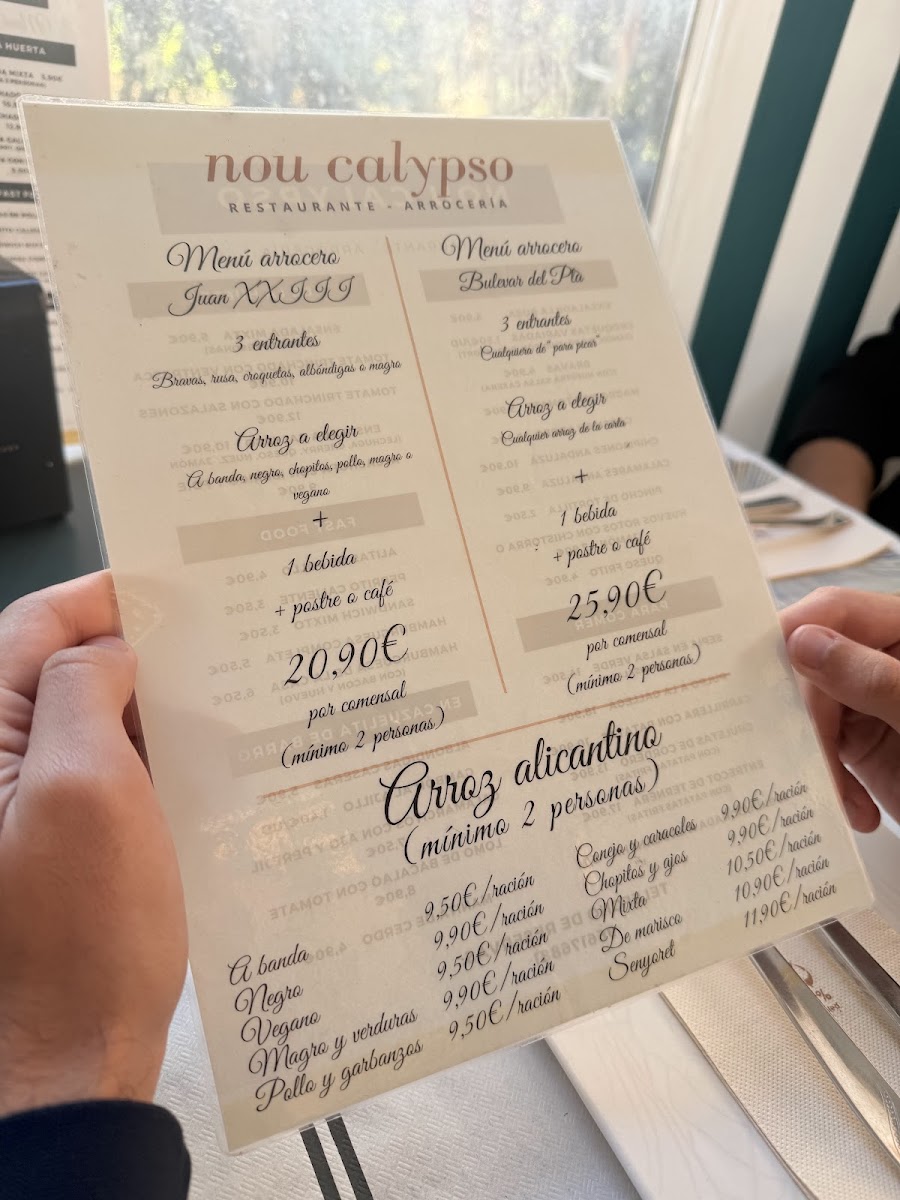 nou calypso
RESTAURANTE - ARROCERÍA
Menú arrocero
Juan XXIII
3 entrantes
Bravas, rusa, croquetas, albóndigas o magro
Arroz a elegir
A banda, negro, chopitos, pollo, magro o
vegano
+
1 bebida
+ postre o café
20,90€
por comensal
(mínimo 2 personas)
Menú arrocero
Bulevar del Plà
3 entrantes
Cualquiera de "para picar"
Arroz a elegir
Cualquier arroz de la carta
+
1 bebida
+ postre o café
25,90€
por comensal
(mínimo 2 personas)
Arroz alicantino
(mínimo 2 personas)
A banda 9,50€/ración
Negro 9,90€/ración
Vegano 9,50€/ración
Magro y verduras 9,90€/ración
Pollo y garbanzos 9,50€/ración
Conejo y caracoles 9,90€/ración
Chopitos y ajos 9,90€/ración
Mixta 10,50€/ración
De marisco 10,90€/ración
Senyoret 11,90€/ración
HUERTA
MIXTA 5,90€